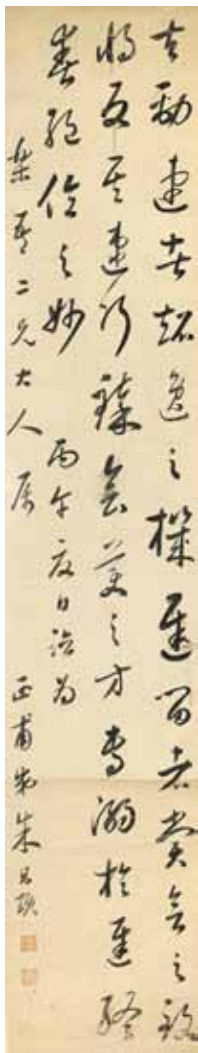 夫勁速者超逸之機遲留者賞會之致
將反其速行臻會美之方專溺於遲終
爽絕倫之妙 丙午夏日臨為
琴二兄大人屬 正甫弟朱昌頤